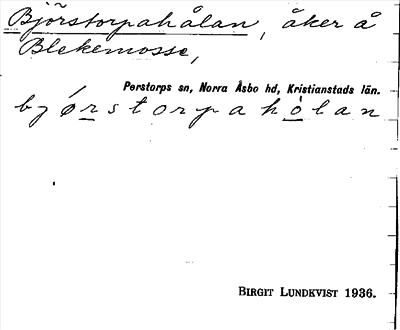 Björstorpahålan, åker å
Blekemosse,
Perstorps sn, Norra Åsbo hd, Kristianstads län.
bjørstorpahòlan
BIRGIT LUNDKVIST 1936.